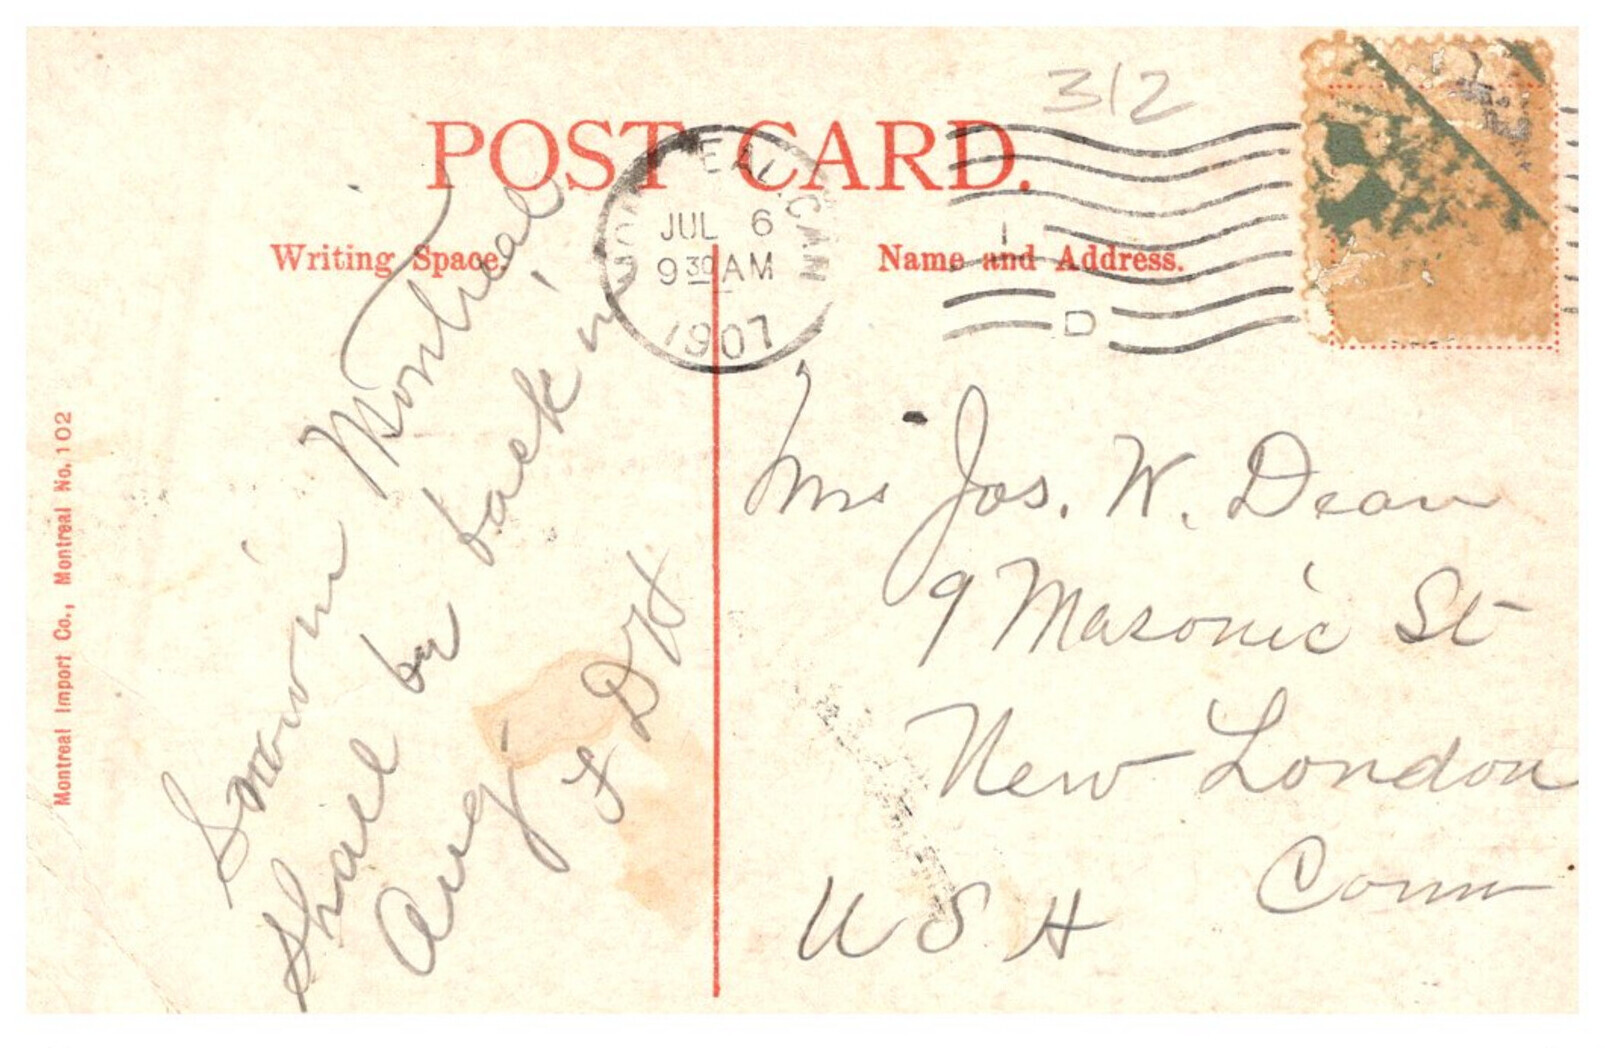 312
POST CARD.
Writing Space.
Name and Address.
MONTREAL, CAN
JUL 6
9 30 AM
1907
D
in Montreal
Shall be back in
Aug.
F D H
Mrs Jos. W. Dean
9 Masonic St
New London
Conn
U S A
Montreal Import Co., Montreal No. 102